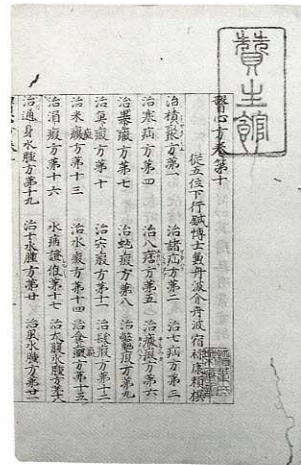 贊生館
醫心方卷第十
從五位下行鍼博士兼丹波介丹波宿祢康頼撰
治積聚方第一 治諸疝方第二 治七疝方第三
治寒疝方第四 治八痞方第五 治癥瘕方第六
治暴癥方第七 治蛇瘕方第八 治鼈瘕方第九
治魚瘕方第十 治宍癥方第十一 治髮瘕方第十二
治米癥方第十三 治水瘕方第十四 治食癥方第十五
治酒瘕方第十六 水病證候第十七 治大腹水腫方第十八
治通身水腫方第十九 治十水腫方第廿 治風水腫方第廿一